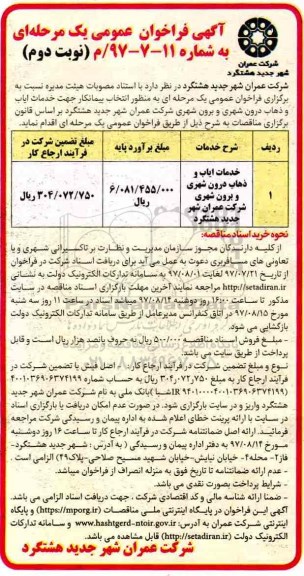 آگهی فراخوان عمومی یک مرحله‌ای
به شماره ۱۱-۷-۹۷/م (نوبت دوم)
شرکت عمران
شهر جدید هشتگرد
شرکت عمران شهر جدید هشتگرد در نظر دارد با استناد مصوبات هیئت مدیره نسبت به
برگزاری فراخوان عمومی یک مرحله ای به منظور انتخاب پیمانکار جهت خدمات ایاب
و ذهاب درون شهری و برون شهری شرکت عمران شهر جدید هشتگرد بر اساس قانون
برگزاری مناقصات به شرح ذیل از طریق فراخوان عمومی یک مرحله ای اقدام نماید.
ردیف شرح خدمات مبلغ برآورد پایه مبلغ تضمین شرکت در فرآیند ارجاع کار
۱ خدمات ایاب و ذهاب درون شهری و برون شهری شرکت عمران شهر جدید هشتگرد ۶/۰۸۱/۴۵۵/۰۰۰ ریال ۳۰۴/۰۷۲/۷۵۰ ریال
نحوه خرید اسناد مناقصه:
از کلیه دارندگان مجوز سازمان مدیریت و نظارت بر تاکسیرانی شهری و یا
تعاونی های مسافربری دعوت به عمل می آید برای دریافت اسناد شرکت در فراخوان
از تاریخ ۹۷/۰۷/۲۱ لغایت ۹۷/۰۸/۰۱ به سامانه تدارکات الکترونیک دولت به نشانی
http://setadiran.ir مراجعه نمایند آخرین مهلت بارگزاری اسناد مناقصه در سایت
مذکور تا ساعت ۱۶:۰۰ روز دوشنبه ۹۷/۰۸/۱۴ میباشد اسناد در ساعت ۱۱ روز سه شنبه
مورخ ۹۷/۰۸/۱۵ در اتاق کنفرانس مدیرعامل از طریق سامانه تدارکات الکترونیک دولت
بازگشایی می شود.
- مبلغ فروش اسناد مناقصه ۵۰۰/۰۰۰ ریال به حروف پانصد هزار ریال است و قابل
پرداخت از طریق سایت می باشد.
نوع و مبلغ تضمین شرکت در فرآیند ارجاع کار: اصل فیش یا تضمین شرکت در
فرآیند ارجاع کار به مبلغ ۳۰۴٫۰۷۲٫۷۵۰ ریال به حساب شماره
بانک ملی به نام شرکت عمران شهر جدید
هشتگرد واریز و در سایت بارگزاری شود. در صورت عدم امکان دریافت یا بارگزاری اسناد
در سایت با ارائه پرینت خطای اعلام شده به اداره پیمان و رسیدگی شرکت مراجعه
فرمائید. ارائه اصل ضمانتنامه شرکت در فرآیند ارجاع کار تا ساعت ۱۴ روز دوشنبه
مورخ ۹۷/۰۸/۱۴ به دفتر اداره پیمان و رسیدگی (به آدرس: شهر جدید هشتگرد-
فاز۲- محله۴- خیابان نیایش- خیابان شهید مسیح صلاحی-پلاک۴۹) الزامی است.
- عدم ارائه ضمانتنامه تا تاریخ فوق به منزله انصراف از فراخوان میباشد.
- شرایط پرداخت بصورت نقدی می باشد.
- ضمنا ارائه شناسه مالی و کد اقتصادی شرکت، جهت دریافت اسناد الزامی می باشد.
آگهی این فراخوان در پایگاه اینترنتی ملی مناقصات (https://mporg.ir) و پایگاه
اینترنتی شرکت عمران به آدرس: www.hashtgerd-ntoir.gov.ir و سامانه تدارکات
الکترونیک دولت (http://setadiran.ir) قابل مشاهده می باشد.
شرکت عمران شهر جدید هشتگرد